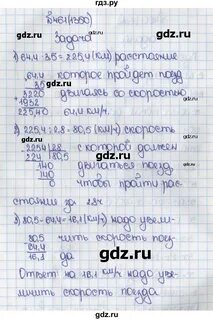 №461(1350)
Задача
1) 64,4 · 3,5 = 225,4 (км) расстояние
64,4 которое пройдет поезд
3,5
3220 двигаясь со скоростью
1932
225,40 64,4 км/ч.
2) 225,4 : 2,8 = 80,5 (км/ч) скорость
2254 28 с которой должен
224 80,5
140 двигаться поезд
140
0 чтобы пройти рас-
стояние за 2,8 ч
3) 80,5 - 64,4 = 16,1 (км/ч) надо увели-
80,5 чить скорость пое-
64,4
16,1 да
Ответ на 16,1 км/ч надо уве-
личить скорость поезда
gdz.ru
gdz.ru
gdz.ru
gdz.ru
gdz.ru
gdz.ru
gdz.ru
gdz.ru